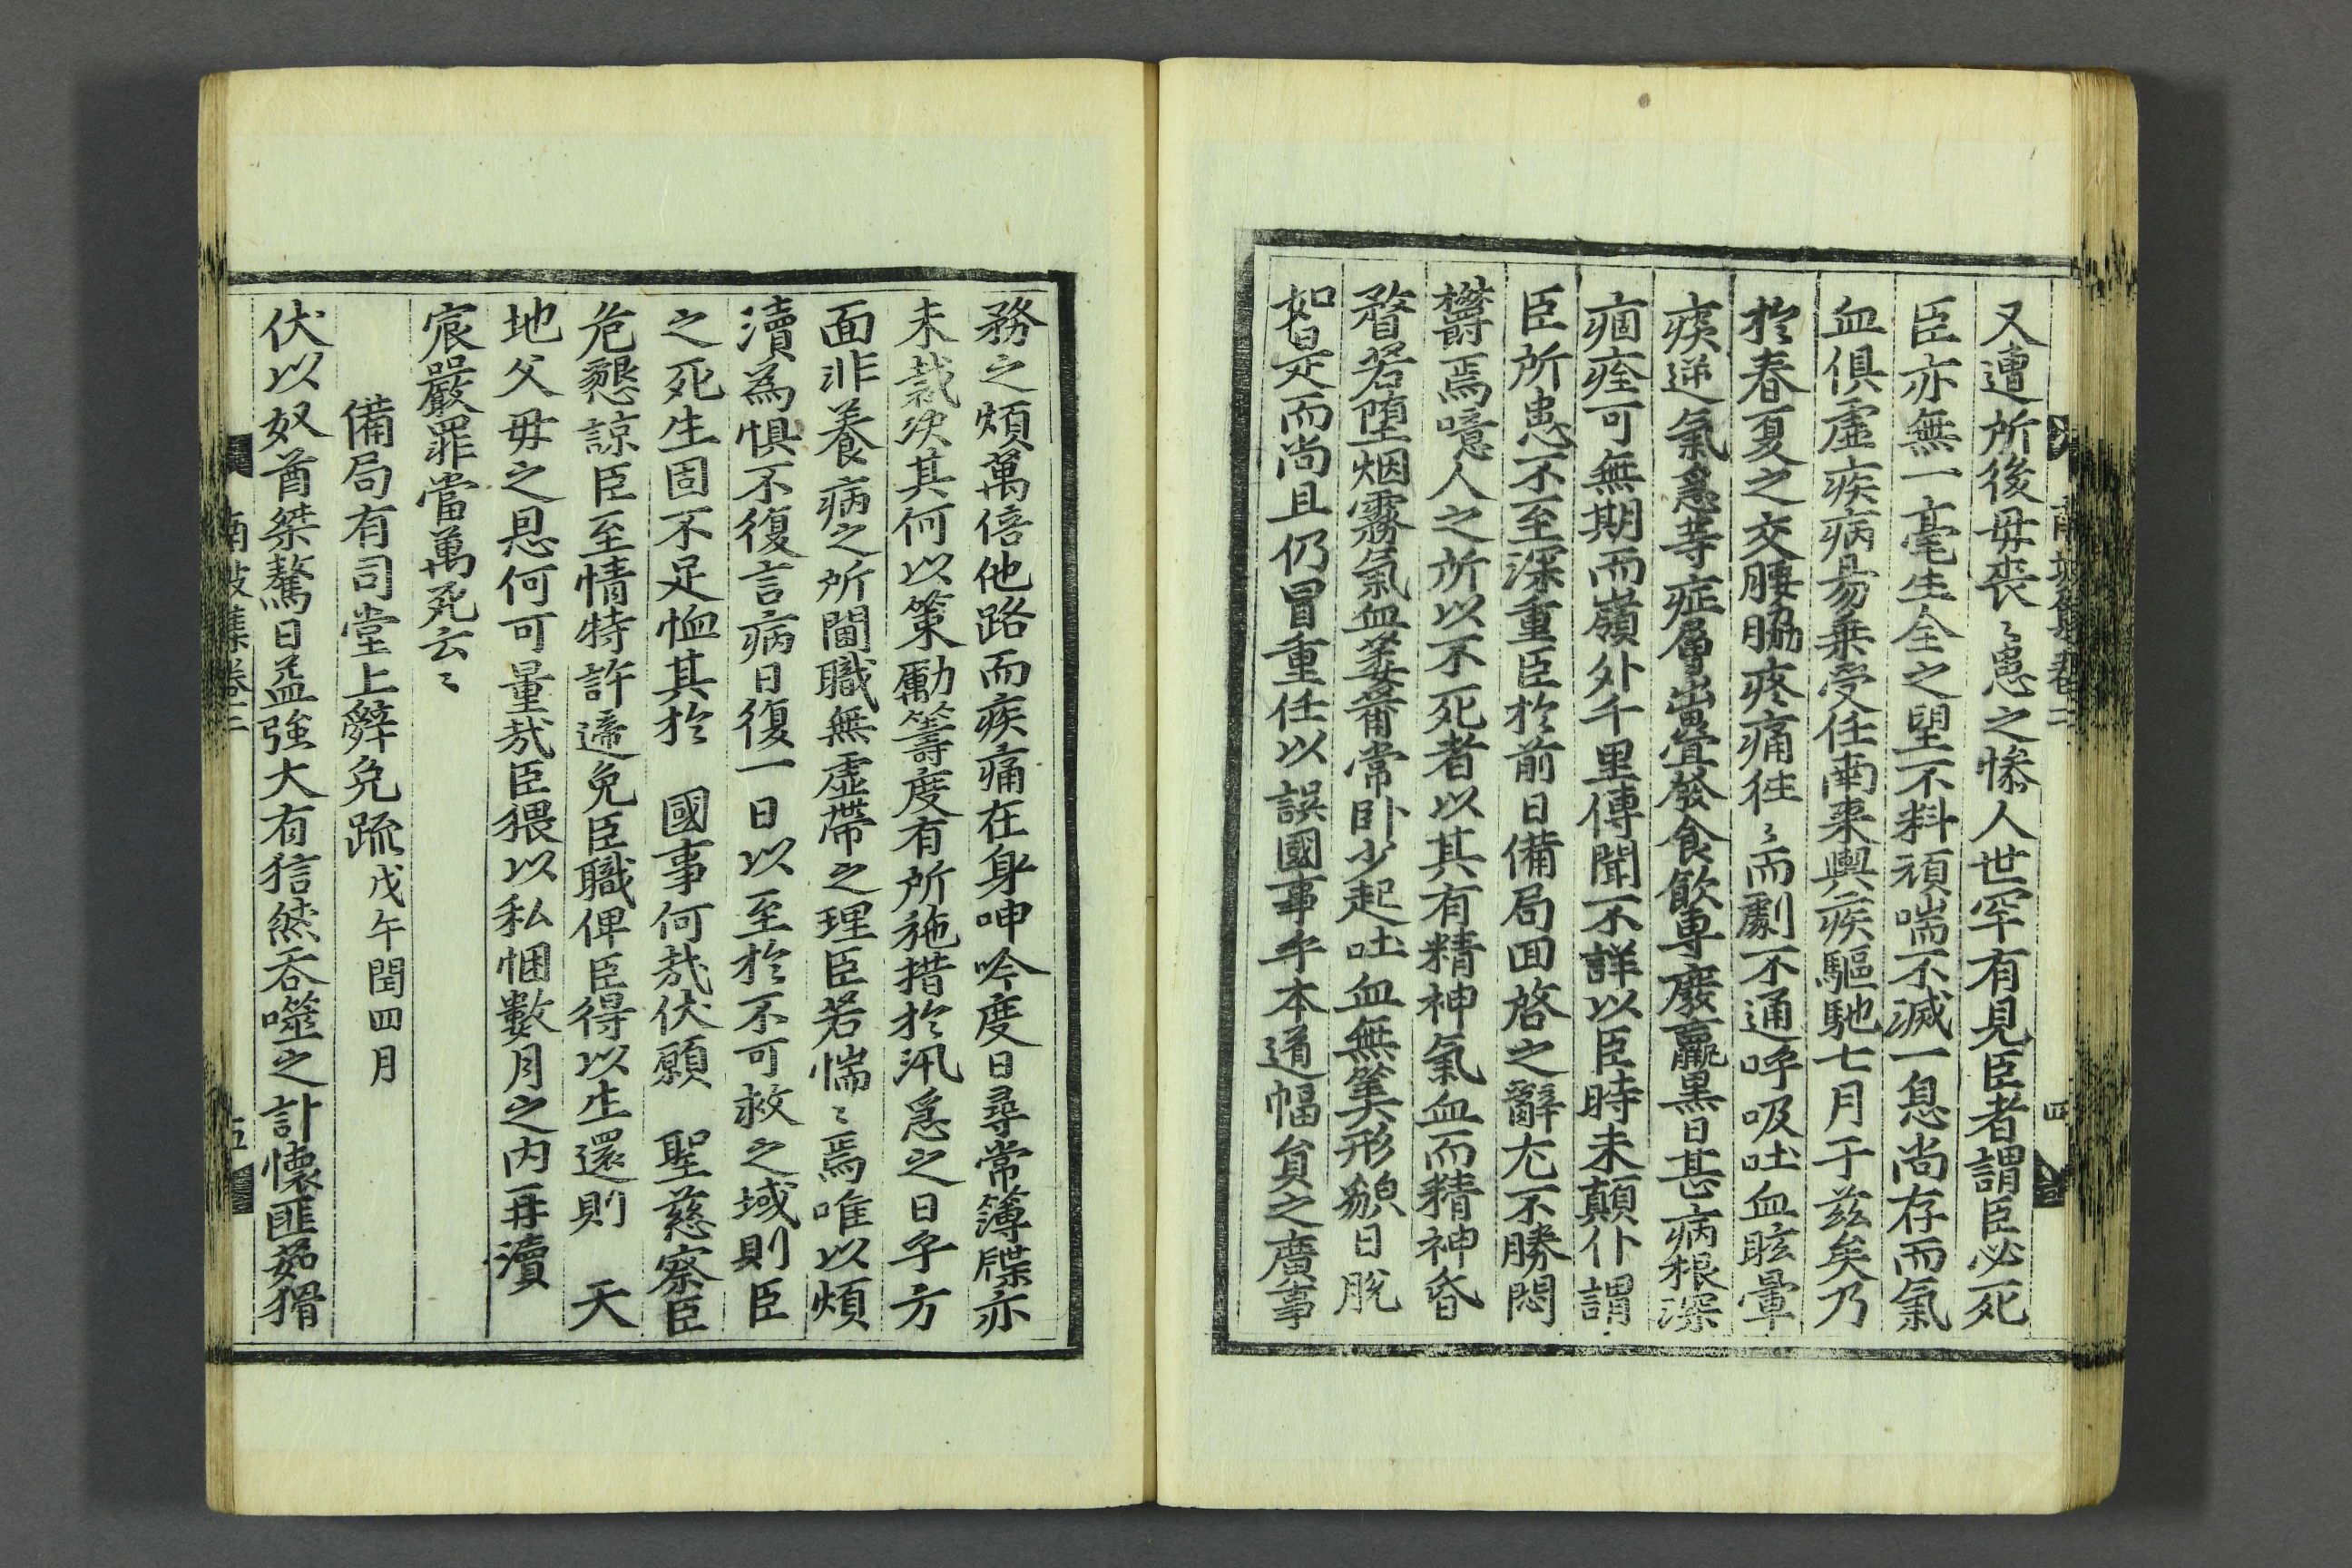 又遭所後毋喪〻患之慘人世罕有見臣者謂臣必死
臣亦無一毫生全之望不料頑喘不滅一息尚存而氣
血俱虛疾病易乗受任南來輿疾驅馳七月于兹矣乃
於春夏之交腰脇疼痛徃〻而劇不通呼吸吐血眩暈
痰逆氣急等症層出疊發食飮專廢羸黑日甚病根深
痼痊可無期而嶺外千里傳聞不詳以臣時未顛仆謂
臣所患不至深重臣於前日備局回啓之辭尤不勝悶
欝焉噫人之所以不死者以其有精神氣血而精神昏
瞀若墮烟霧氣血萎薾常卧少起吐血無筭形貌日脫
如是而尚且仍冒重任以誤國事乎本道幅貟之廣事
四
務之煩萬倍他路而疾痛在身呻吟度日尋常簿牒亦
未裁决其何以策勵籌度有所施措於汛急之日乎方
面非養病之所閫職無虛帶之理臣若惴〻焉唯以煩
瀆為懼不復言病日復一日以至於不可救之域則臣
之死生固不足恤其於 國事何哉伏願 聖慈察臣
危懇諒臣至情特許遞免臣職俾臣得以生還則 天
地父毋之恩何可量哉臣猥以私悃數月之内再瀆
宸嚴罪當萬死云〻
備局有司堂上辭免疏戊午閏四月
伏以奴酋桀驁日益強大有狺然吞噬之計懷匪茹猾
五